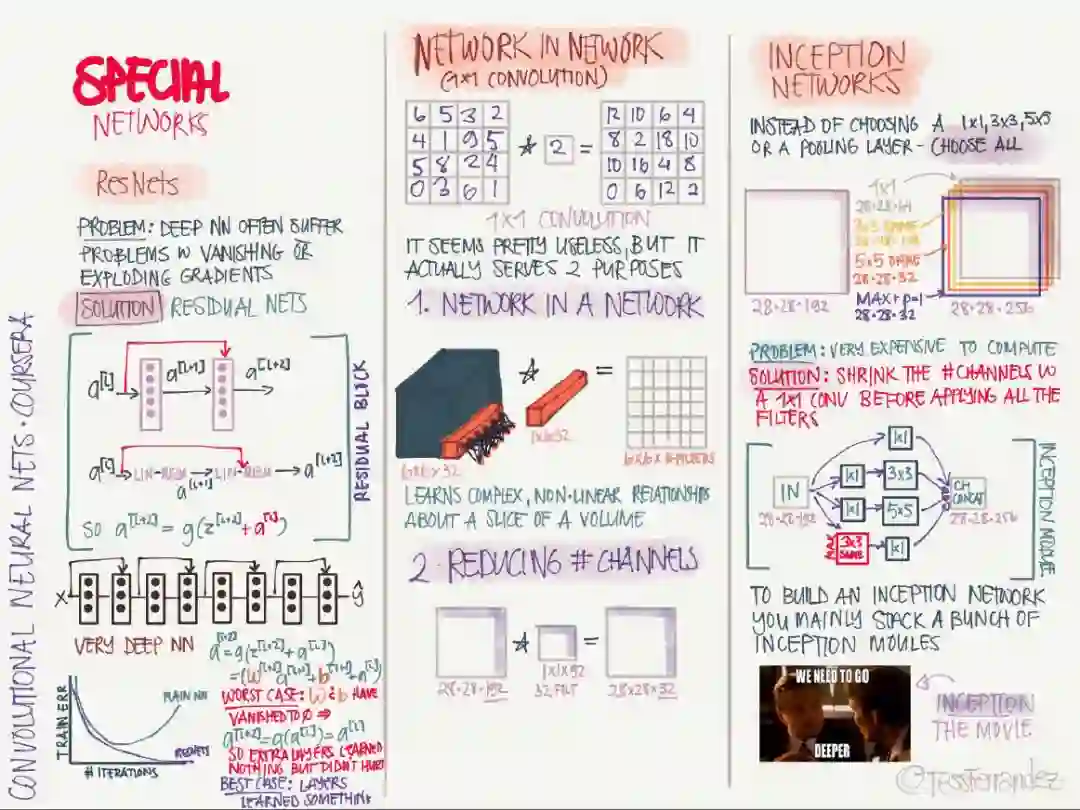 CONVOLUTIONAL NEURAL NETS · COURSERA
SPECIAL
NETWORKS
ResNets
PROBLEM: DEEP NN OFTEN SUFFER
PROBLEMS W VANISHING OR
EXPLODING GRADIENTS
SOLUTION RESIDUAL NETS
a[l] a[l+1] a[l+2]
a[l] LIN-RELU LIN-RELU a[l+2]
a[l+1]
SO a[l+2] = g(z[l+2] + a[l])
RESIDUAL BLOCK
X ŷ
VERY DEEP NN
a[l+2] = g(z[l+2] + a[l])
WORST CASE: W & b HAVE
VANISHED TO 0 ⇒
SO EXTRA LAYERS LEARNED
NOTHING BUT DIDN'T HURT
BEST CASE: LAYERS
LEARNED SOMETHING
TRAIN ERR
RESNETS
# ITERATIONS
NETWORK IN NETWORK
(1x1 CONVOLUTION)
6 5 3 2 12 10 6 4
4 1 9 5 * 2 = 8 2 18 10
5 8 2 4 10 16 4 8
0 3 6 1 0 6 12 2
1x1 CONVOLUTION
IT SEEMS PRETTY USELESS, BUT IT
ACTUALLY SERVES 2 PURPOSES
1. NETWORK IN A NETWORK
* =
6x6x32 1x1x32
LEARNS COMPLEX, NON-LINEAR RELATIONSHIPS
ABOUT A SLICE OF A VOLUME
2. REDUCING # CHANNELS
* =
28·28·192 1x1x92 28x28x32
32 FILT
INCEPTION
NETWORKS
INSTEAD OF CHOOSING A 1x1, 3x3, 5x5
OR A POOLING LAYER - CHOOSE ALL
1x1
28·28·64
3x3 SAME
5x5 SAME
28·28·32
MAX + P=1
28·28·32
28·28·192 28·28·256
PROBLEM: VERY EXPENSIVE TO COMPUTE
SOLUTION: SHRINK THE # CHANNELS W
A 1x1 CONV BEFORE APPLYING ALL THE
FILTERS
1x1
IN 1x1 3x3 CH
28·28·192 1x1 5x5 CONCAT
3x3 1x1 28·28·256
SAME
INCEPTION MODULE
TO BUILD AN INCEPTION NETWORK
YOU MAINLY STACK A BUNCH OF
INCEPTION MOULES
WE NEED TO GO
DEEPER
INCEPTION
THE MOVIE
@TessFerrandez